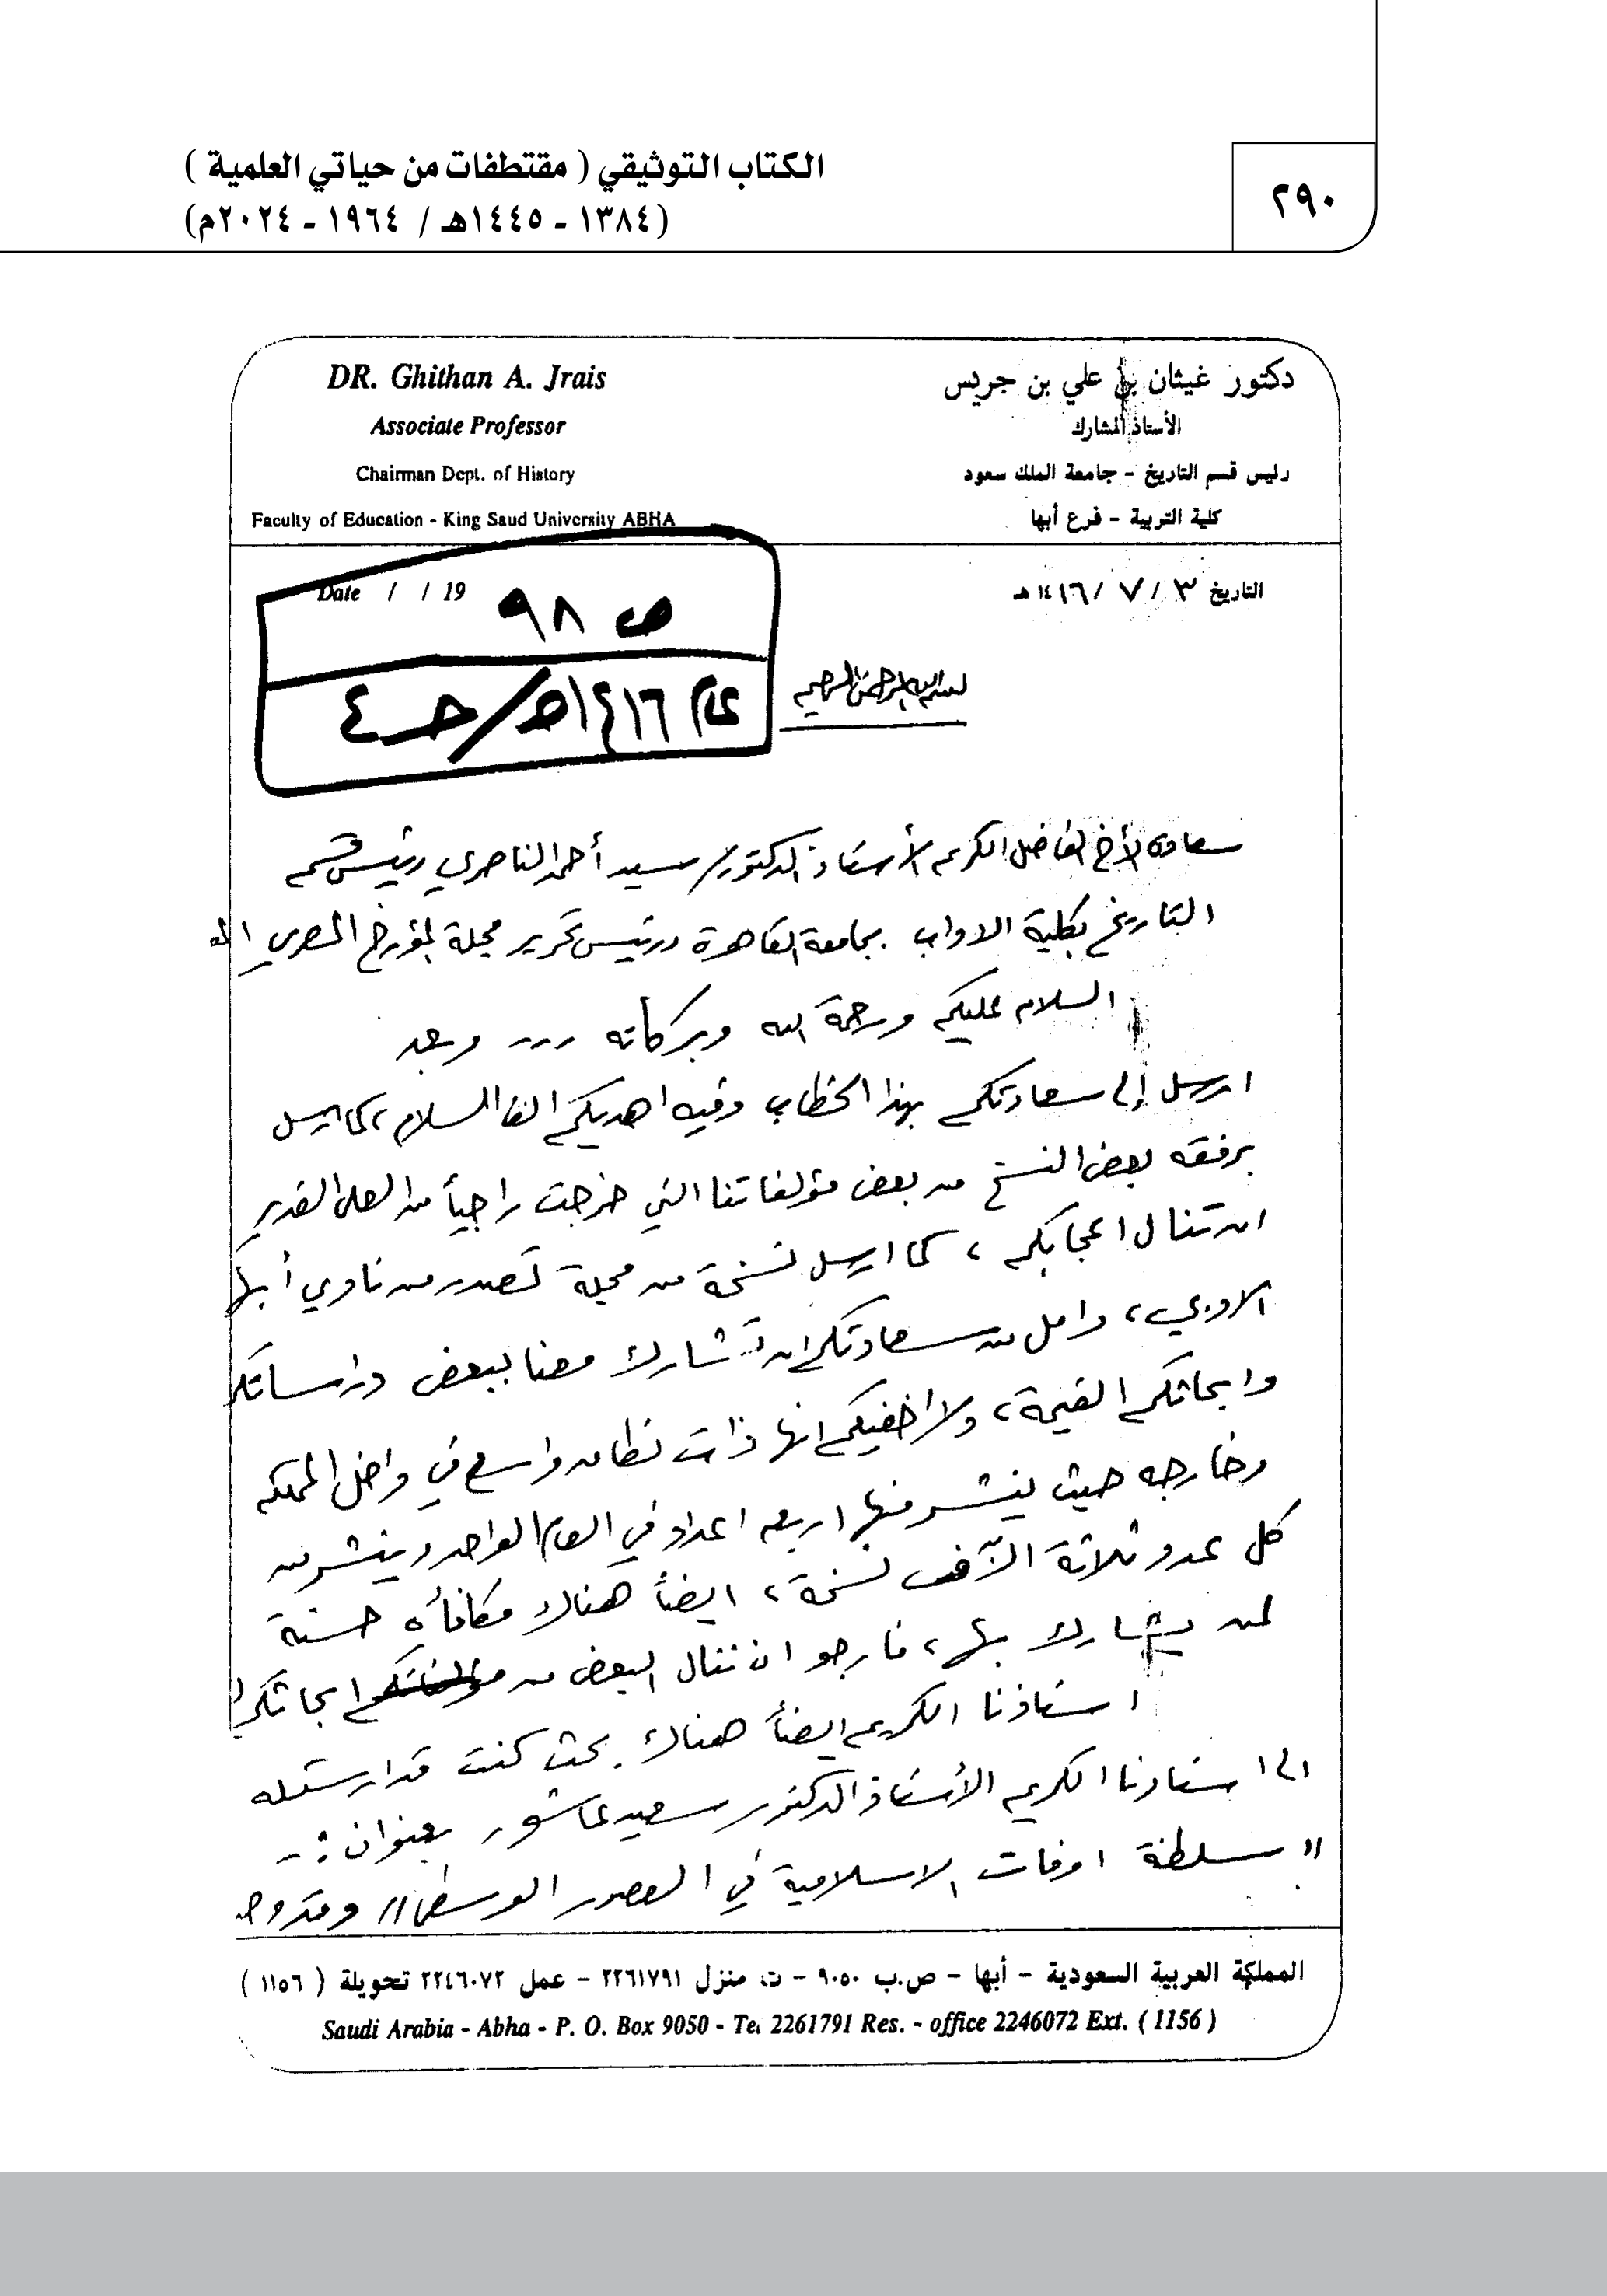 الكتاب التوثيقي ( مقتطفات من حياتي العلمية )
(١٣٨٤ - ١٤٤٥هـ / ١٩٦٤ - ٢٠٢٤م)
٢٩٠
دكتور غيثان بن علي بن جريس
الأستاذ المشارك
رئيس قسم التاريخ - جامعة الملك سعود
كلية التربية - فرع أبها
DR. Ghithan A. Jrais
Associate Professor
Chairman Dept. of History
Faculty of Education - King Saud University ABHA
التاريخ ٣ / ٧ / ١٤١٦ هـ
Date / / 19
ص ٩٨
عام ١٤١٦هـ / جـ ٤
بسم الله الرحمن الرحيم
سعادة الأخ الفاضل الكريم الأستاذ الدكتور / سيد أحمد الناصري رئيس قسم
التاريخ بكلية الاداب بجامعة القاهرة ورئيس تحرير مجلة المؤرخ المصري
السلام عليكم ورحمة الله وبركاته ... وبعد
ارسل إلى سعادتكم بهذا الخطاب وفيه اهديكم الف السلام ، كما ارسل
برفقه بعض النسخ من بعض مؤلفاتنا التي خرجت راجياً من العلى القدير
ان تنال اعجابكم ، كما ارسل نسخة من مجلة تصدر من نادي أبها
الادبي ، وامل من سعادتكم ان تشارك معنا ببعض دراساتكم
وابحاثكم القيمة ، ولا اخفيكم انها ذات نطاق واسع في داخل المملكه
وخارجه حيث ينشر منها اربعه اعداد في العام الواحد وينشر من
كل عدد ثلاثة الآف نسخة ، ايضاً هناك مكافأه حسنة
لمن يشارك بها ، فارجو ان ننال البعض من ابحاثكم
استاذنا الكريم ايضاً هناك بحث كنت قد ارسلته
الى استاذنا الكريم الأستاذ الدكتور سعيد عاشور بعنوان :-
" سلطنة اوفات الاسلامية في العصور الوسطى "
المملكة العربية السعودية - أبها - ص.ب ٩٠٥٠ - ت منزل ٢٢٦١٧٩١ - عمل ٢٢٤٦٠٧٢ تحويلة ( ١١٥٦ )
Saudi Arabia - Abha - P. O. Box 9050 - Tel 2261791 Res. - office 2246072 Ext. ( 1156 )